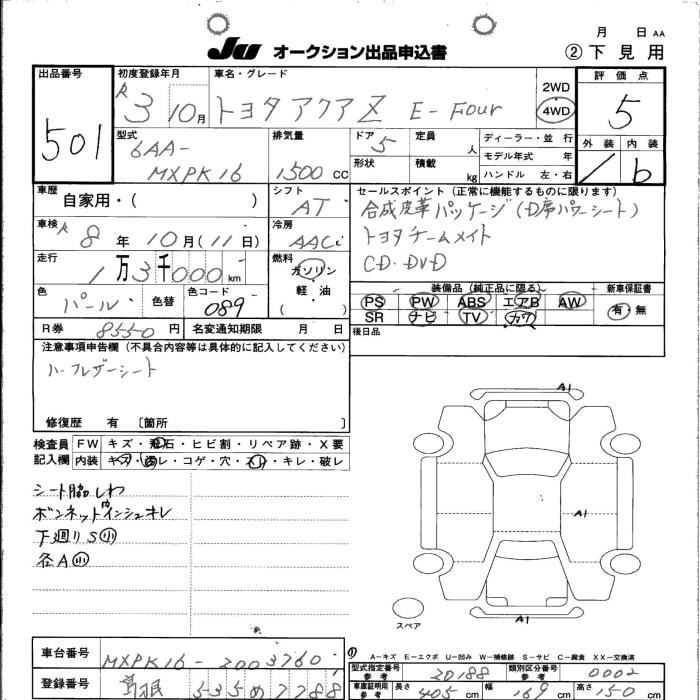 月 日 AA
JU オークション出品申込書 ②下見用
出品番号 初度登録年月 車名・グレード 2WD 評価点
501 R3 10月 トヨタ アクア Z E-Four 4WD 5
型式 排気量 ドア 定員 ディーラー・並行 外装 内装
6AA-
MXPK16 1500 CC 5 人 モデル年式 年 b
形状 積載 kg ハンドル 左・右
車歴 自家用・( ) シフト AT セールスポイント(正常に機能するものに限ります)
合成皮革パッケージ(D席パワーシート)
トヨタチームメイト
CD・DVD
車検 R8年10月(11日) 冷房 AAC
走行 1万3千000km 燃料 ガソリン
軽・油
( )
色 パール 色替 色コード 089
装備品(純正品に限る) 新車保証書
PS PW ABS エアB AW 有・無
SR ナビ TV カワ
R券 8550円 名変通知期限 月 日 後日品
注意事項申告欄(不具合内容等は具体的に記入してください)
ハーフレザーシート
修復歴 有 [箇所 ]
検査員 FW キズ・飛石・ヒビ割・リペア跡・X要
記入欄 内装 キズ・汚レ・コゲ・穴・スレ・キレ・破レ
シート脇しわ
ボンネット内インシュキレ
下廻りS小
各A小
A1
A1
A1
スペア
A-キズ E-エクボ U-凹み W-補修跡 S-サビ C-腐食 XX-交換済
車台番号 MXPK16-2003760
型式指定番号 参考 20188 類別区分番号 参考 0002
登録番号 535 7288
車庫証明用 参考 長さ 405 cm 幅 169 cm 高さ 150 cm